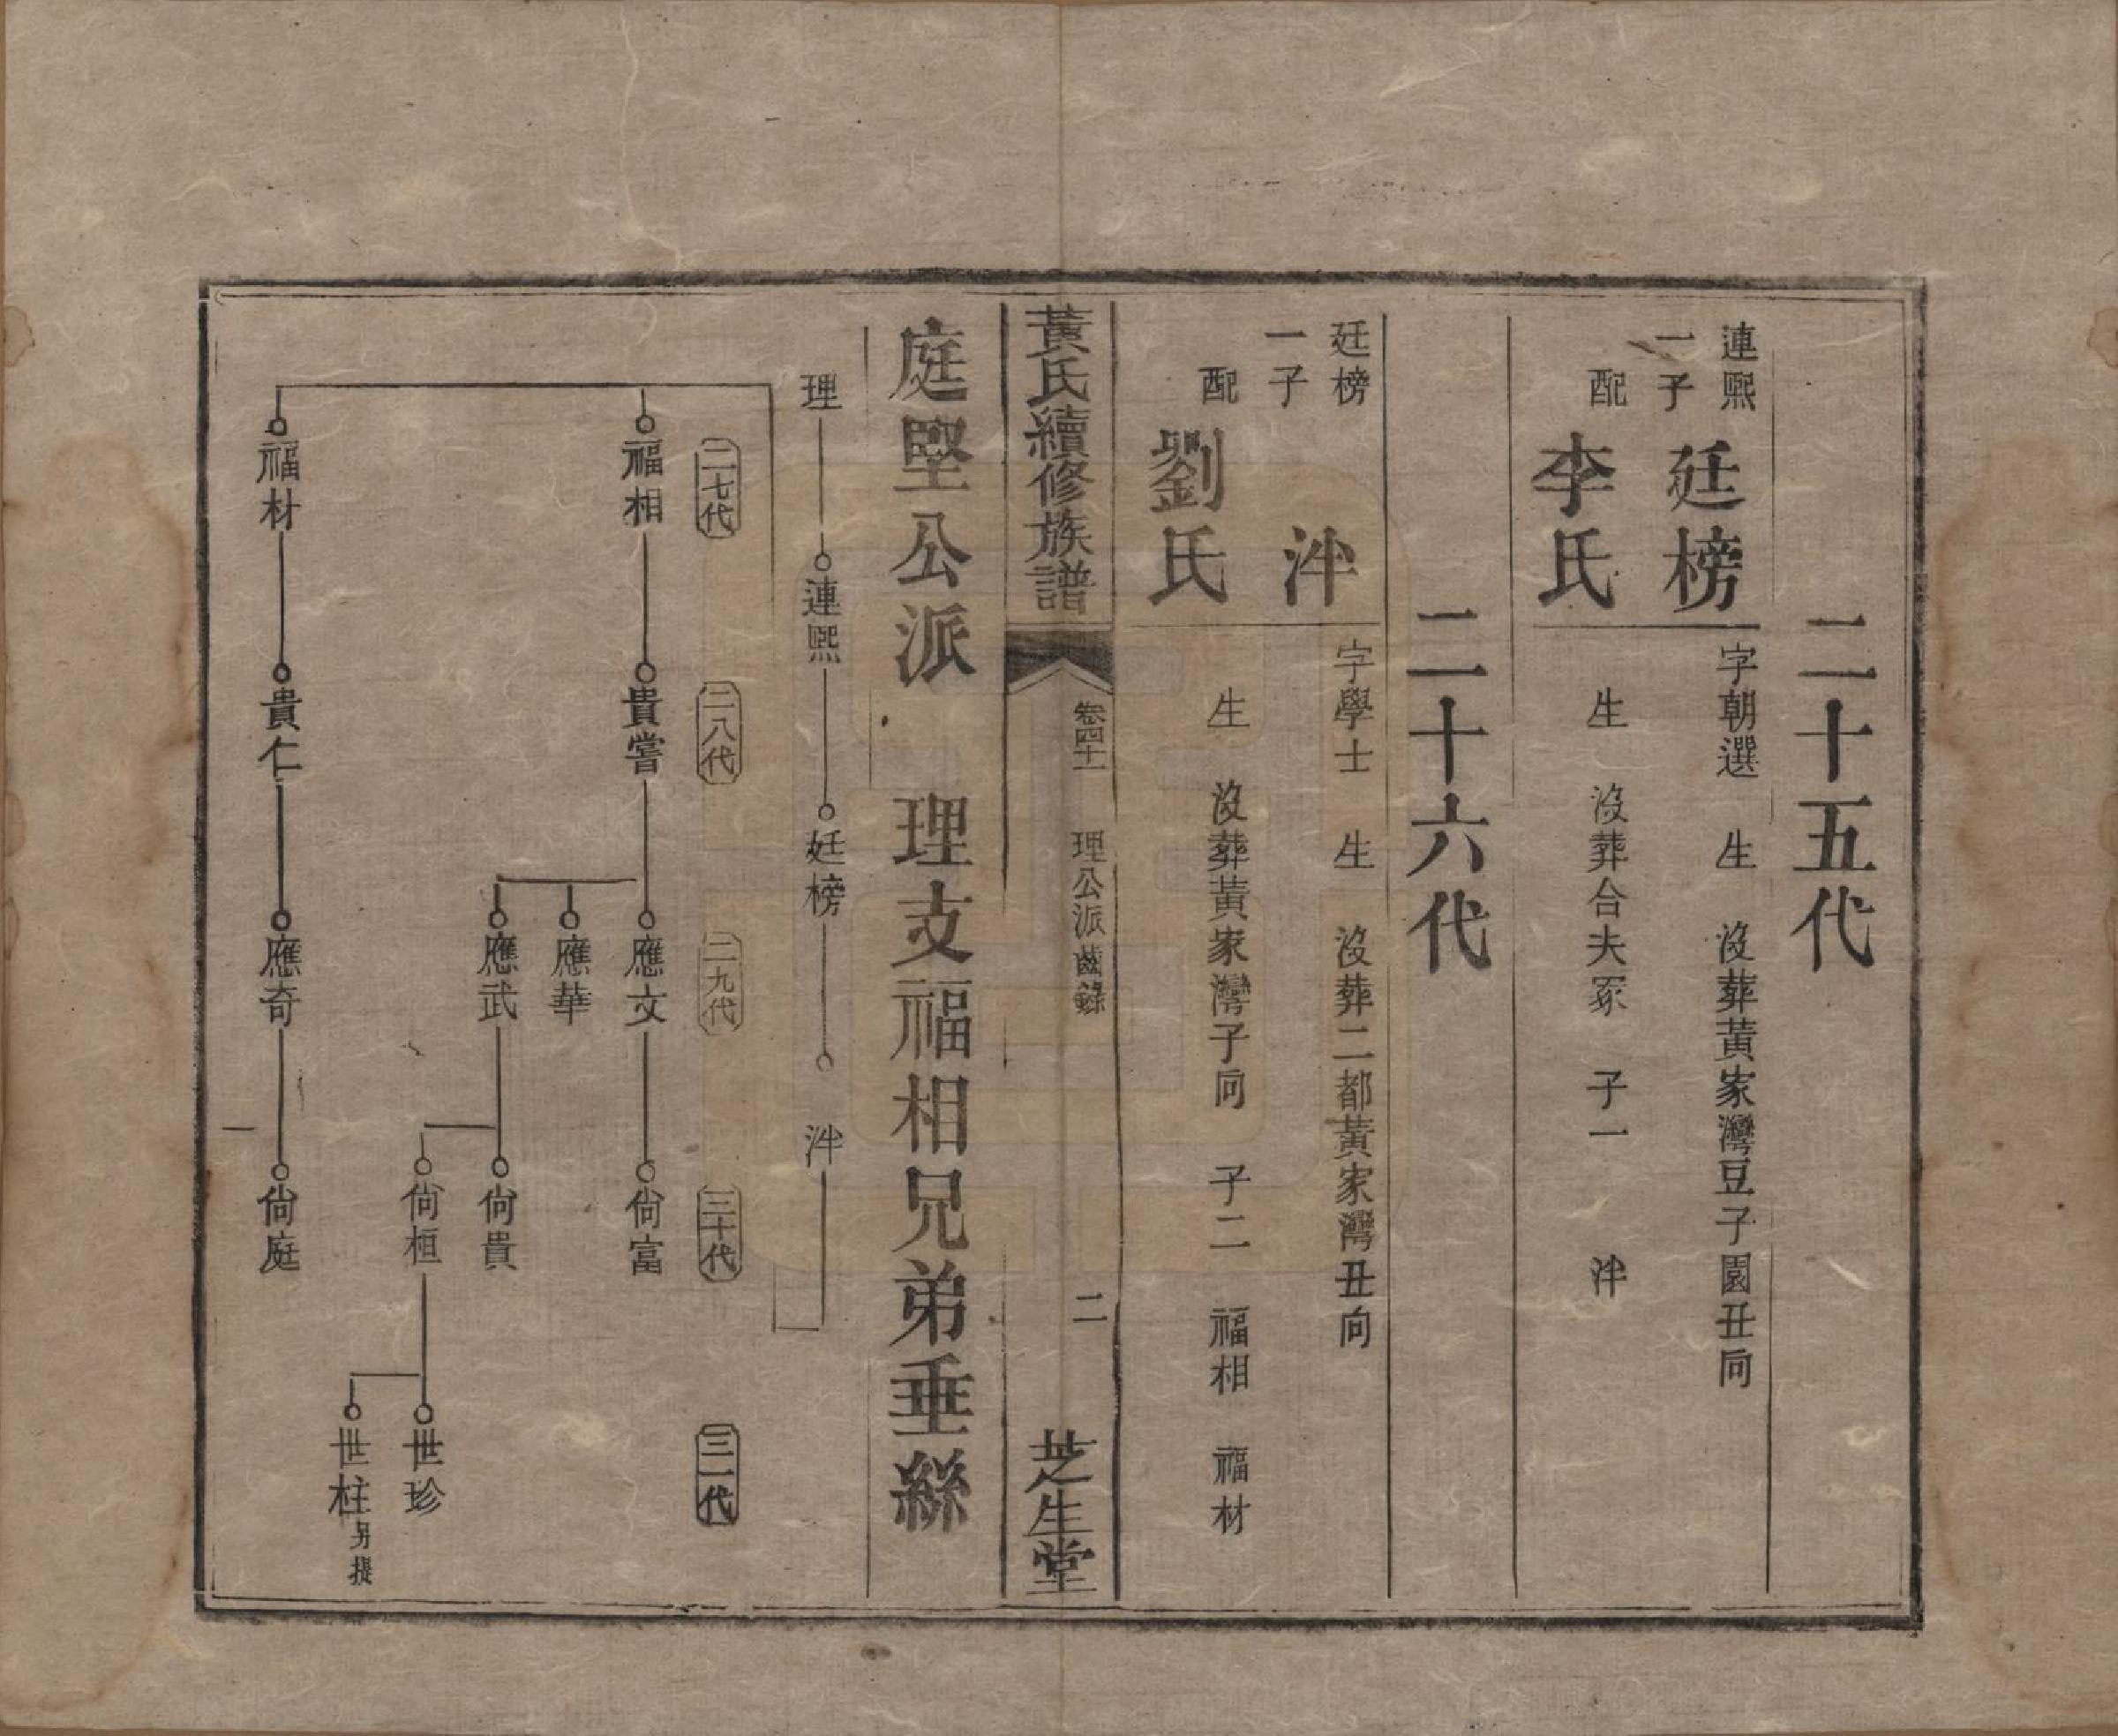 二十五代
連熙
一子
廷榜
字朝選　生　沒葬黃家灣豆子園丑向
配
李氏
生　沒葬合夫冢　子一　泮
二十六代
廷榜
一子
泮
字學士　生　沒葬二都黃家灣丑向
配
劉氏
生　沒葬黃家灣子向　子二　福相　福材
黃氏續修族譜
卷四十一　理公派齒錄
二
芝生堂
庭堅公派　理支福相兄弟垂絲
理　連熙　廷榜　泮
二七代　二八代　二九代　三十代　三一代
福相　貴嘗　應文　尙富
應華
應武　尙貴
尙桓　世珍
世柱另提
福材　貴仁　應奇　尙庭